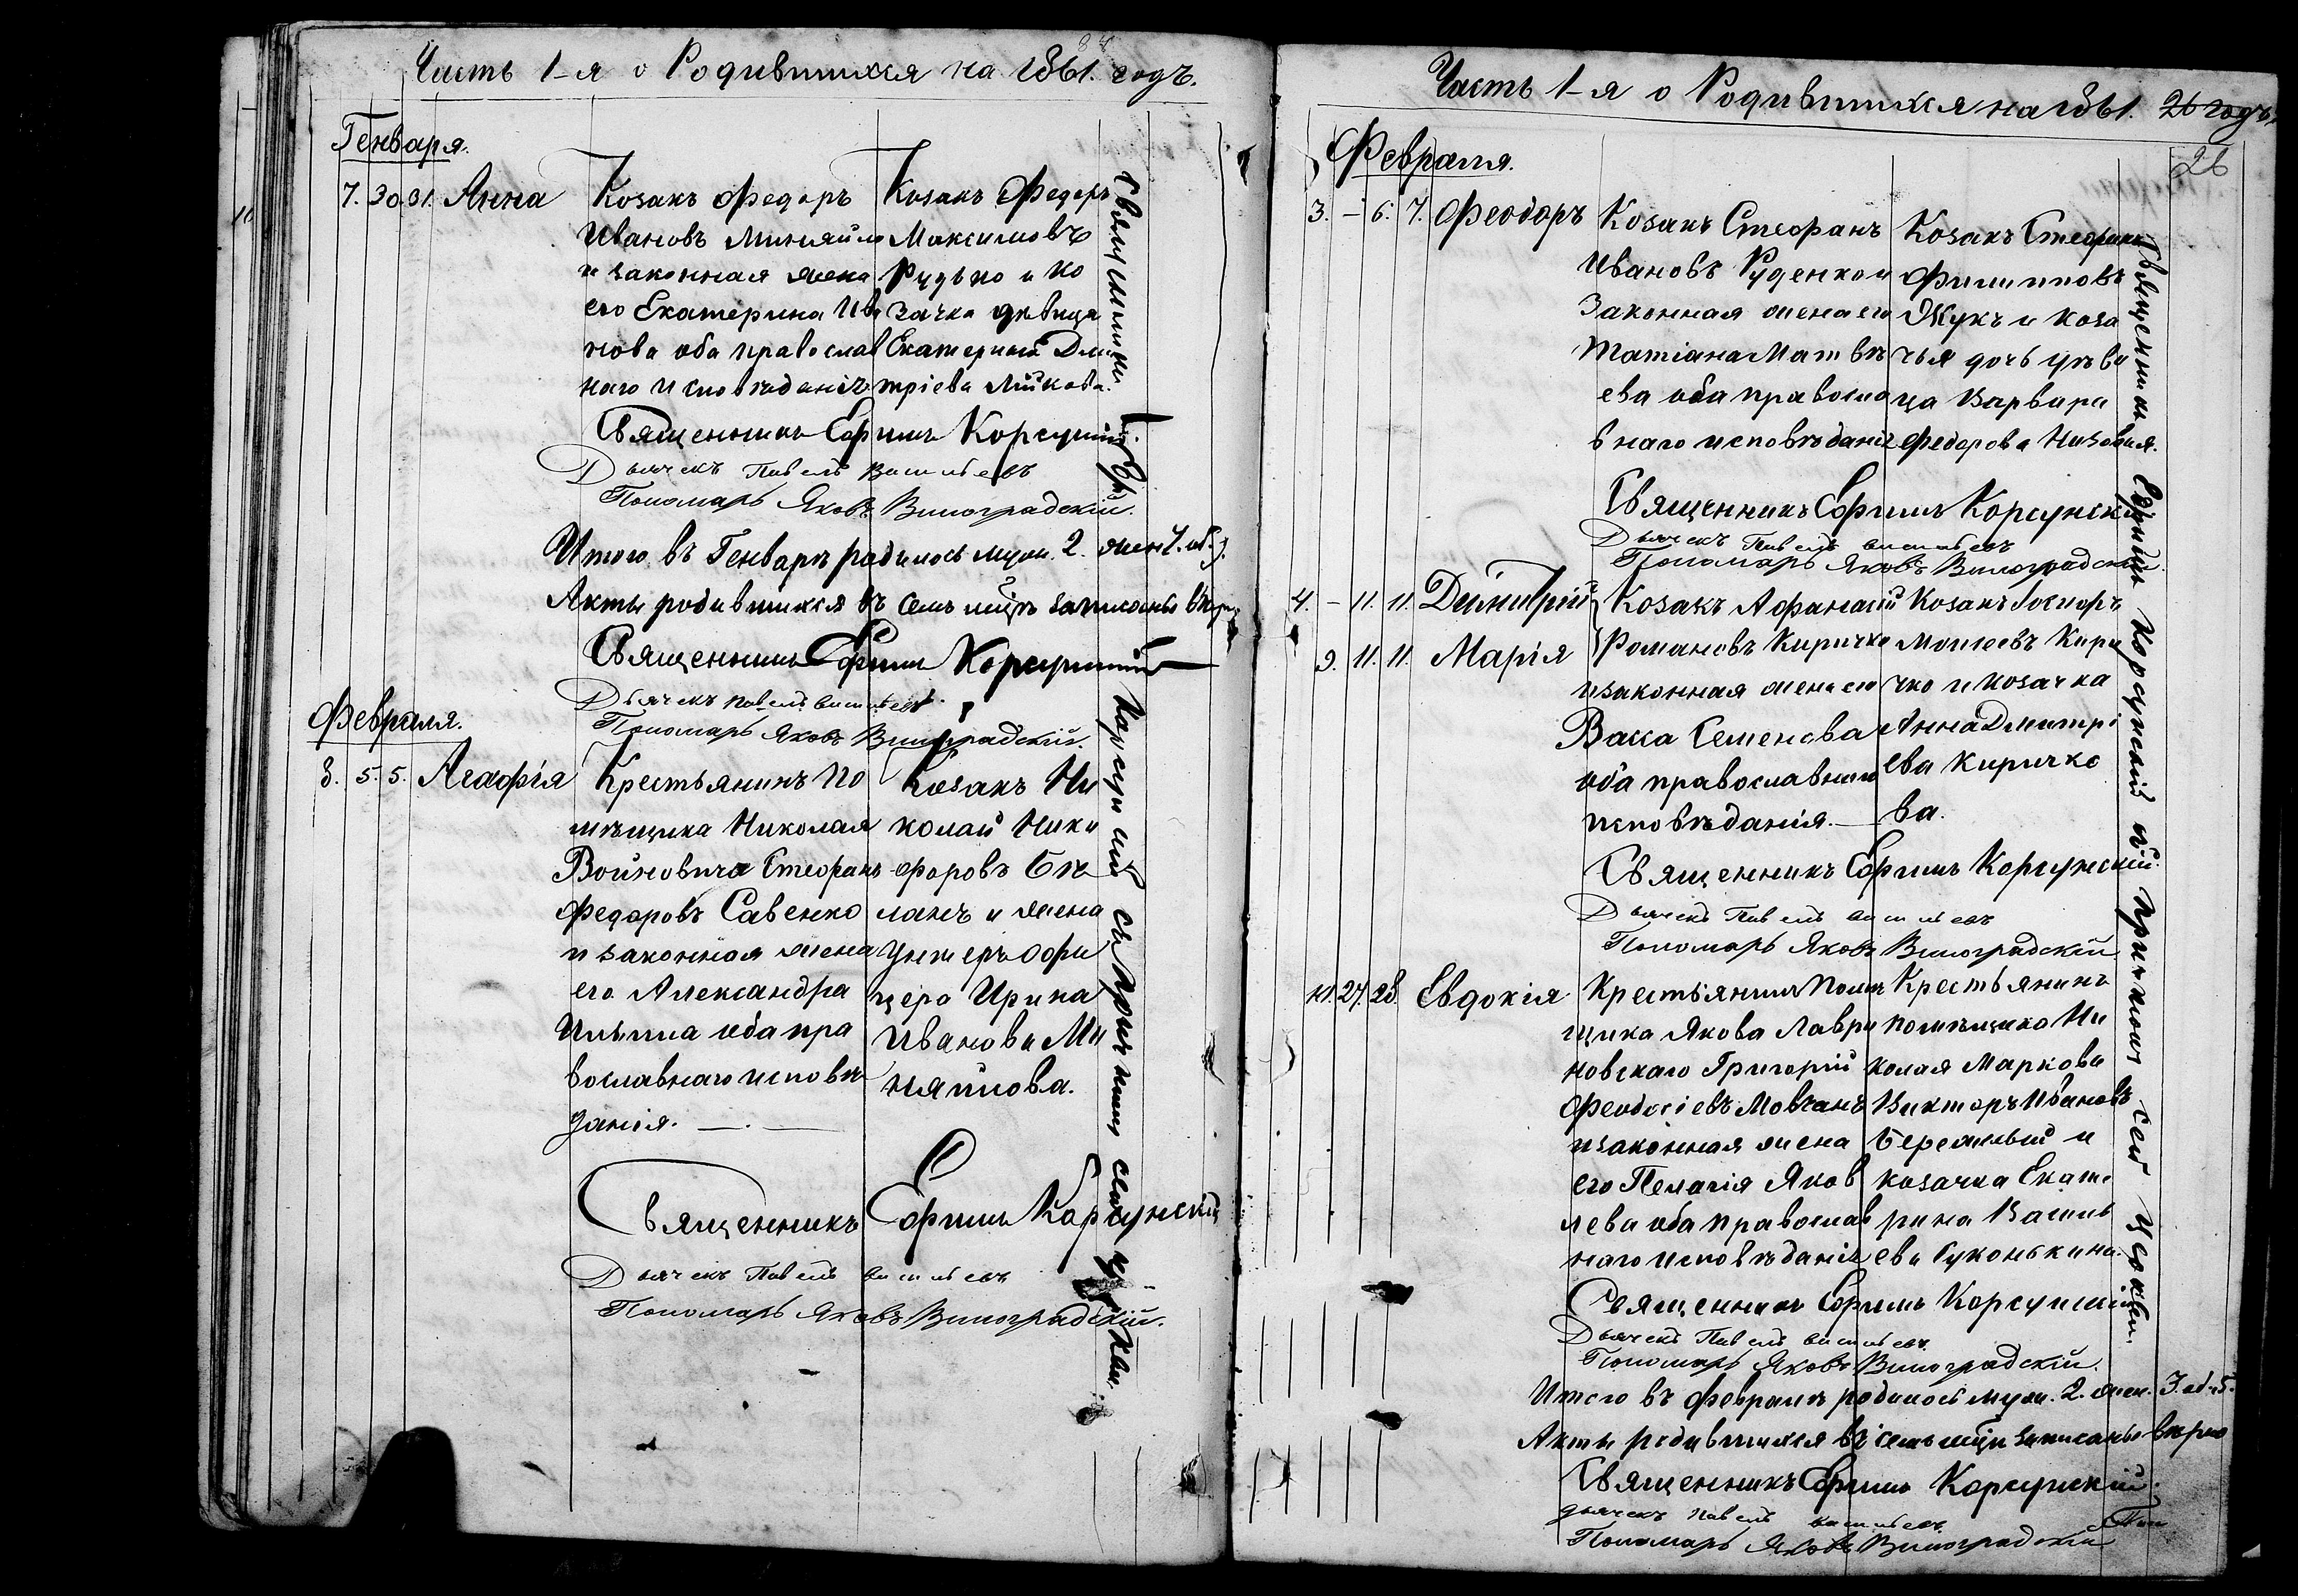 84
Часть 1-я о Родившихся на 1861. годъ.
Генваря.
7. 30. 31. Анна
Козакъ Федоръ
Ивановъ Миняйло
и законная жена
его Екатерина Ива
нова оба православ
наго исповѣданія
Козакъ Федоръ
Максимовъ
Рудько и ко
зачка дѣвица
Екатерина Дми
тріева
Священникъ Ефимъ Корсунскій.
Дьячекъ Павелъ Васильевъ
Пономарь Яковъ Виноградскій.
Итого въ Генварѣ родилось муж. 2. жен. 7. об. 9.
Акты родившихся въ семъ мцѣ записаны вѣрно
Священникъ Ефимъ Корсунскій
Дьячекъ Павелъ Васильевъ
Пономарь Яковъ Виноградскій.
Февраля.
8. 5. 5. Агафія
Крестьянинъ по
мѣщика Николая
Войновича Стефанъ
Федоровъ Савенко
и законная жена
его Александра
Ильина оба пра
вославнаго исповѣ
данія.
Козакъ Ни
колай Ники
форовъ Бѣ
ланъ и жена
унтеръ офи
цера Ирина
Иванова Ми
няйлова.
Священникъ Ефимъ Корсунскій
Дьячекъ Павелъ Васильевъ
Пономарь Яковъ Виноградскій.
Священникъ Еф. Корсунскій съ причтомъ
10
Часть 1-я о Родившихся на 1861. 26 годъ.
26
Февраля.
3. – 6. 7. Феодоръ
Козакъ Стефанъ
Ивановъ Руденко и
Законная жена его
Татіана Матвѣ
ева оба правосла
внаго исповѣданія
Козакъ Стефанъ
Филипповъ
Жукъ и коза
чья дочь дѣви
ца Варвара
Федорова Низовая.
Священникъ Ефимъ Корсунскій
Дьячекъ Павелъ Васильевъ
Пономарь Яковъ Виноградскій.
4. – 11. 11. Димитрій
9. 11. 11. Марія
Козакъ Афанасій
Романовъ Киричко
и законная жена его
Васса Семенова
оба православнаго
исповѣданія.
Козакъ Іосифъ
Моисеевъ Кири
чко и козачка
Анна Дмитрі
ева Киричко
ва.
Священникъ Ефимъ Корсунскій.
Дьячекъ Павелъ Васильевъ
Пономарь Яковъ Виноградскій
10. 27. 28. Евдокія
Крестьянинъ помѣ
щика Якова Лаври
новскаго Григорій
Феодосіевъ Мовчанъ
и законная жена
его Пелагія Яков
лева оба православ
наго исповѣданія
Крестьянинъ
помѣщика Ни
колая Маркова
Викторъ Ивановъ
Бережный и
козачка Екате
рина Василь
ева Суконькина.
Священникъ Ефимъ Корсунскій
Дьячекъ Павелъ Васильевъ
Пономарь Яковъ Виноградскій.
Итого въ Февралѣ родилось муж. 2. жен. 3. об. 5.
Акты родившихся въ семъ мцѣ записаны вѣрно
Священникъ Ефимъ Корсунскій.
Дьячекъ Павелъ Васильевъ
Пономарь Яковъ Виноградскій
Священникъ Ефимъ Корсунскій съ причтомъ сей церкви.